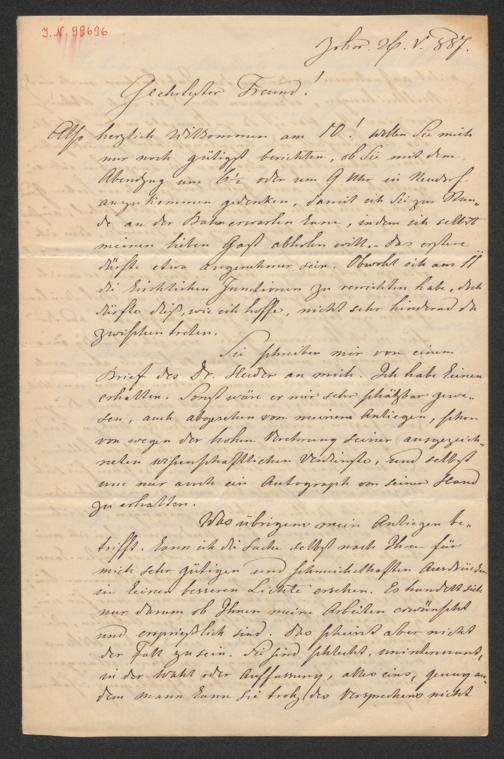 J. N. 99696
26. V. 887.
Geehrtester Freund!
Also herzlich willkommen am 10! Wollen Sie mich
nur noch gütigst berichten, ob Sie mit dem
Abendzug um 6 oder um 9 Uhr in Neudorf
anzukommen gedenken, damit ich Sie zur Stun-
de an der Bahn erwarten kann, indem ich selbst
meinen lieben Gast abholen will. – Das erstere
dürfte etwa angenehmer sein. Obwohl ich am 11
die kirchlichen Functionen zu verrichten habe, doch
dürfte dieß, wie ich hoffe, nicht sehr hindernd da
zwischen treten.
Sie schreiben mir von einem
Brief des Dr. Heider an mich. Ich habe keinen
erhalten. Sonst wäre er mir sehr schätzbar gewe-
sen, auch abgesehen von meinem Anliegen, schon
von wegen der hohen Verehrung seiner ausgezeich-
neten wissenschaftlichen Verdienste, und selbst
um nur auch ein Autograph von seiner Hand
zu erhalten.
Was übrigens mein Anliegen be-
trifft, kann ich die Sache selbst nach Ihren für
mich sehr gütigen und schmeichelhaften Ausdrücken
in keinem besseren Lichte ersehen. Es handelt sich
nur darum ob Ihnen meine Arbeiten erwünscht
und ersprießlich sind. Das scheint aber nicht
der Fall zu sein. Sie sind schlecht, uninteressant,
in der Wahl oder Auffassung, alles eins, genug an
dem man kann Sie trotz des Versprechens nicht